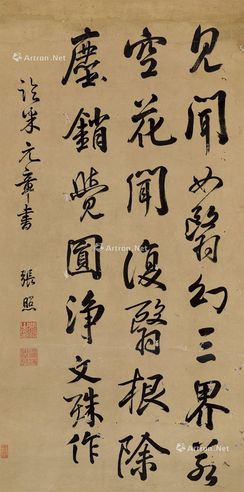 見聞如翳幻三界若
空花聞復翳根除
塵銷覺圓淨文殊作
臨米元章書
張照
Artron.Net
Artron.Net
Artron.Net
Artron.Net